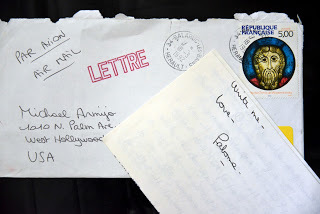 PAR AVION
AIR MAIL
LETTRE
RÉPUBLIQUE
FRANÇAISE 5,00
Michael Armijo
1210 N. Palm Ave
West Hollywood
USA
Write me -
love -
Paloma -